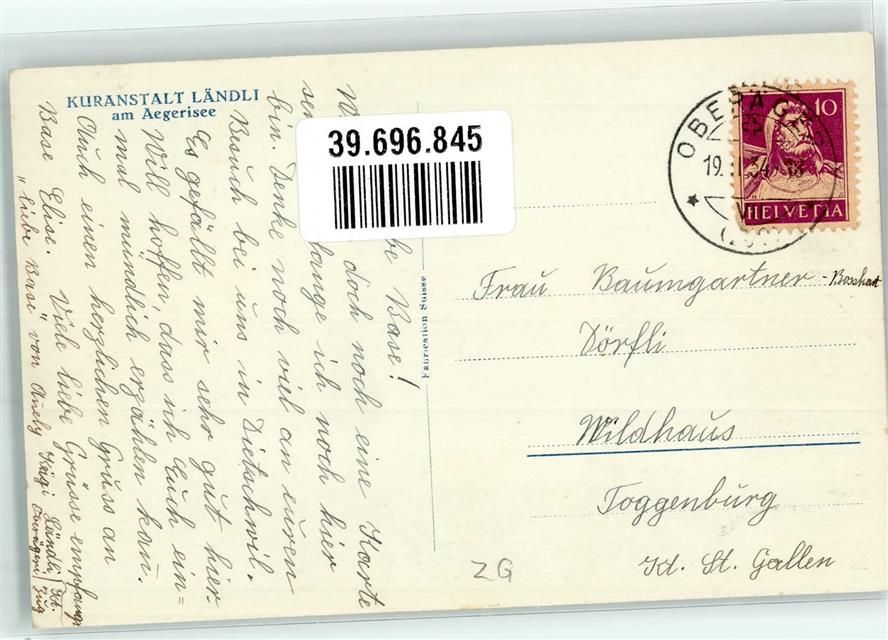 KURANSTALT LÄNDLI
am Aegerisee
39.696.845
OBERÄGERI
19. 34
10
HELVETIA
Fabrication Suisse
Base!
doch noch eine Karte
lange ich noch hier
bin. Denke noch viel an euren
Besuch bei uns in Dietschwil.
Es gefällt mir sehr gut hier.
Will hoffen, dass ich Euch ein=
mal mündlich erzählen kan.
Auch einen herzlichen Gruss an
Base Elise. Viele liebe Grüsse empfange
"liebe Base" von Anely Kägi Ländli
Oberägeri Kt. Zug
Frau Baumgartner-Bosshart
Dörfli
Wildhaus
Toggenburg
Kt. St. Gallen
ZG